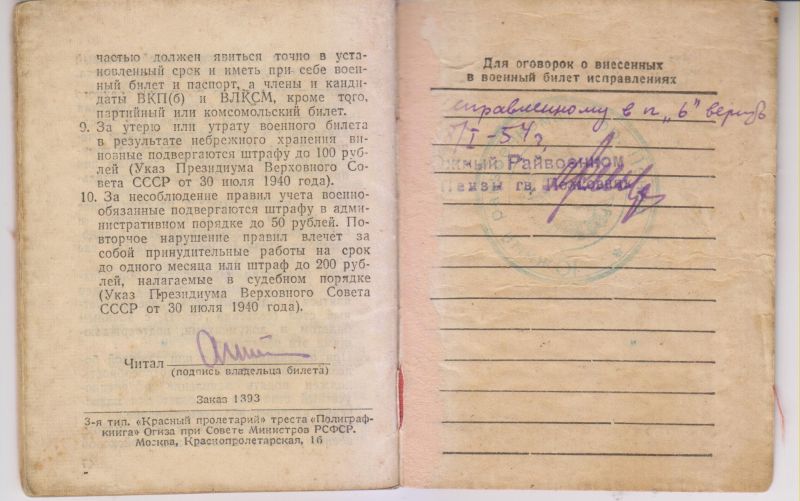 частью должен явиться точно в уста-
новленный срок и иметь при себе воен-
ный билет и паспорт, а члены и канди-
даты ВКП(б) и ВЛКСМ, кроме того,
партийный или комсомольский билет.
9. За утерю или утрату военного билета
в результате небрежного хранения ви-
новные подвергаются штрафу до 100 руб-
лей (Указ Президиума Верховного Со-
вета СССР от 30 июля 1940 года).
10. За несоблюдение правил учета военно-
обязанные подвергаются штрафу в адми-
нистративном порядке до 50 рублей. По-
вторное нарушение правил влечет за
собой принудительные работы на срок
до одного месяца или штраф до 200 руб-
лей, налагаемые в судебном порядке
(Указ Президиума Верховного Совета
СССР от 30 июля 1940 года).
Читал
(подпись владельца билета)
Заказ 1393
3-я тип. «Красный пролетарий» треста «Полиграф-
книга» Огиза при Совете Министров РСФСР.
Москва, Краснопролетарская, 16
Для оговорок о внесенных
в военный билет исправлениях
исправленному в п „6" верить
I-54 г.
Южный Райвоенком
Пензы гв.